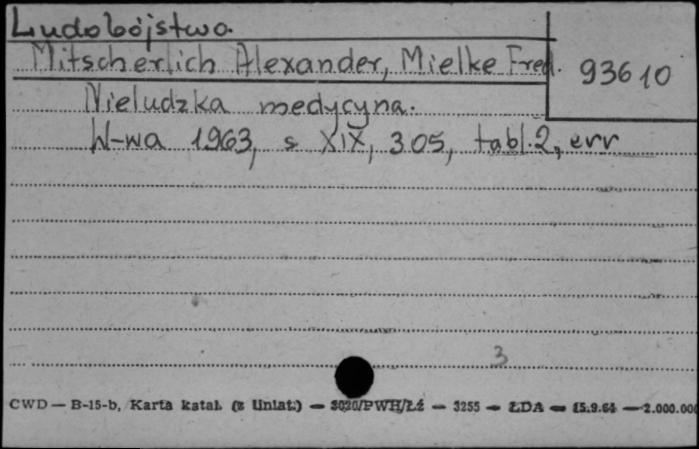 Ludobójstwo.
Mitscherlich Alexander, Mielke Fred.
93610
Nieludzka medycyna.
W-wa 1963, s XIX, 305, tabl. 2, err
3
CWD — B-15-b, Karta katal. (z liniat.) — 3020/PWH/Łź — 3255 — ŁDA — 15.9.64 — 2.000.000